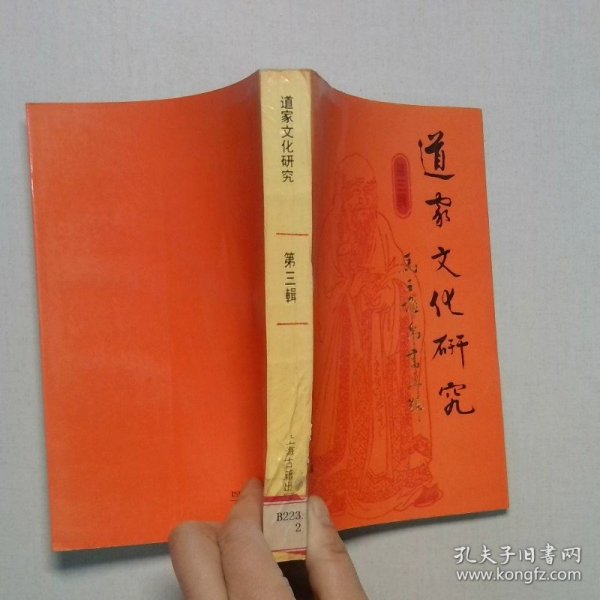 道家文化研究
第三輯
上海古籍出
B223.
2
道家文化研究
第三輯
孔夫子旧书网
www.kongfz.com